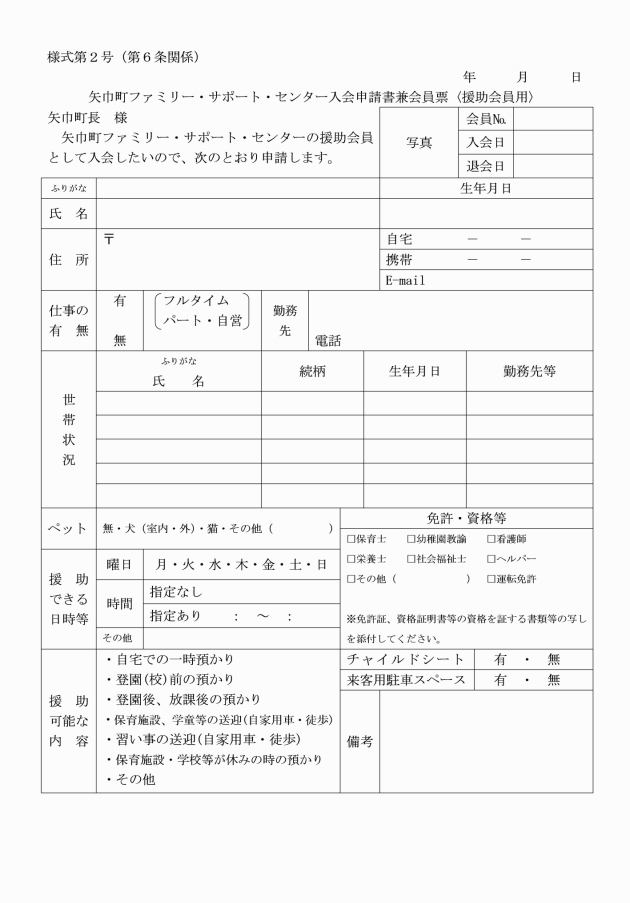 様式第２号（第６条関係）
年　　　月　　　日
矢巾町ファミリー・サポート・センター入会申請書兼会員票〈援助会員用〉
矢巾町長　様
矢巾町ファミリー・サポート・センターの援助会員
として入会したいので、次のとおり申請します。
写真
会員№
入会日
退会日
ふりがな
生年月日
氏　名
住　所
〒
自宅　　　－　　　－
携帯　　　－　　　－
E-mail
仕事の
有　無
有
無
フルタイム
パート・自営
勤務
先
電話
世
帯
状
況
ふりがな
氏　　名
続柄
生年月日
勤務先等
ペット
無・犬（室内・外）・猫・その他（　　　　　）
免許・資格等
□保育士　□幼稚園教諭　□看護師
□栄養士　□社会福祉士　□ヘルパー
□その他（　　　　　　）　□運転免許
※免許証、資格証明書等の資格を証する書類等の写し
を添付してください。
援　助
できる
日時等
曜日
月・火・水・木・金・土・日
時間
指定なし
指定あり　　：　～　：
その他
援　助
可能な
内　容
・自宅での一時預かり
・登園(校)前の預かり
・登園後、放課後の預かり
・保育施設、学童等の送迎(自家用車・徒歩)
・習い事の送迎(自家用車・徒歩)
・保育施設・学校等が休みの時の預かり
・その他
チャイルドシート
有　・　無
来客用駐車スペース
有　・　無
備考